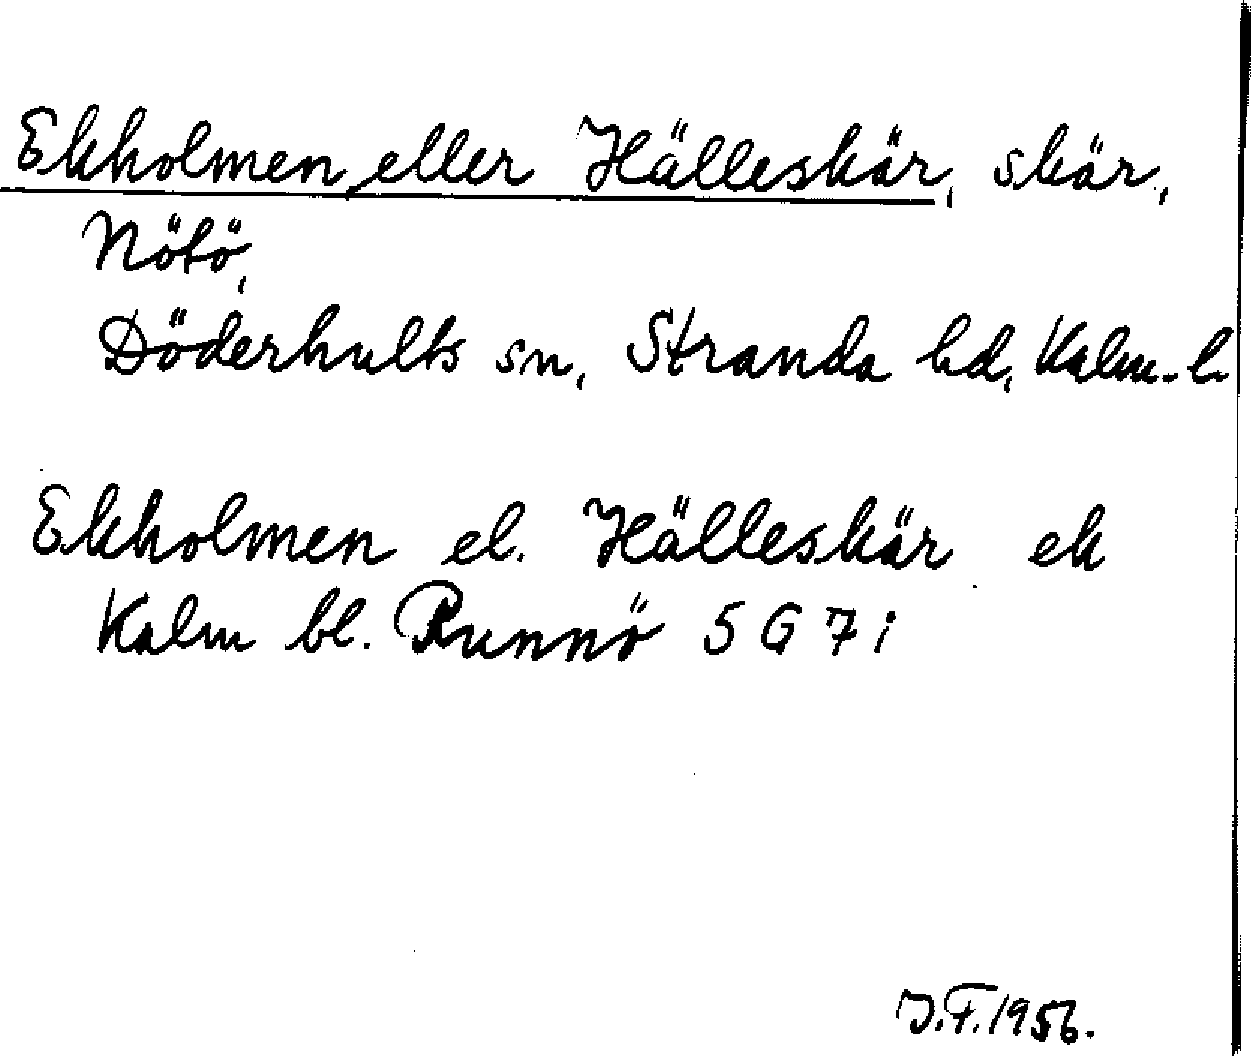 Ekholmen eller Hälleskär, skär,
Nötö,
Döderhults sn, Stranda hd, Kalm. l.
Ekholmen el. Hälleskär ek
Kalm bl. Runnö 5 G 7 i
J.F. 1956.